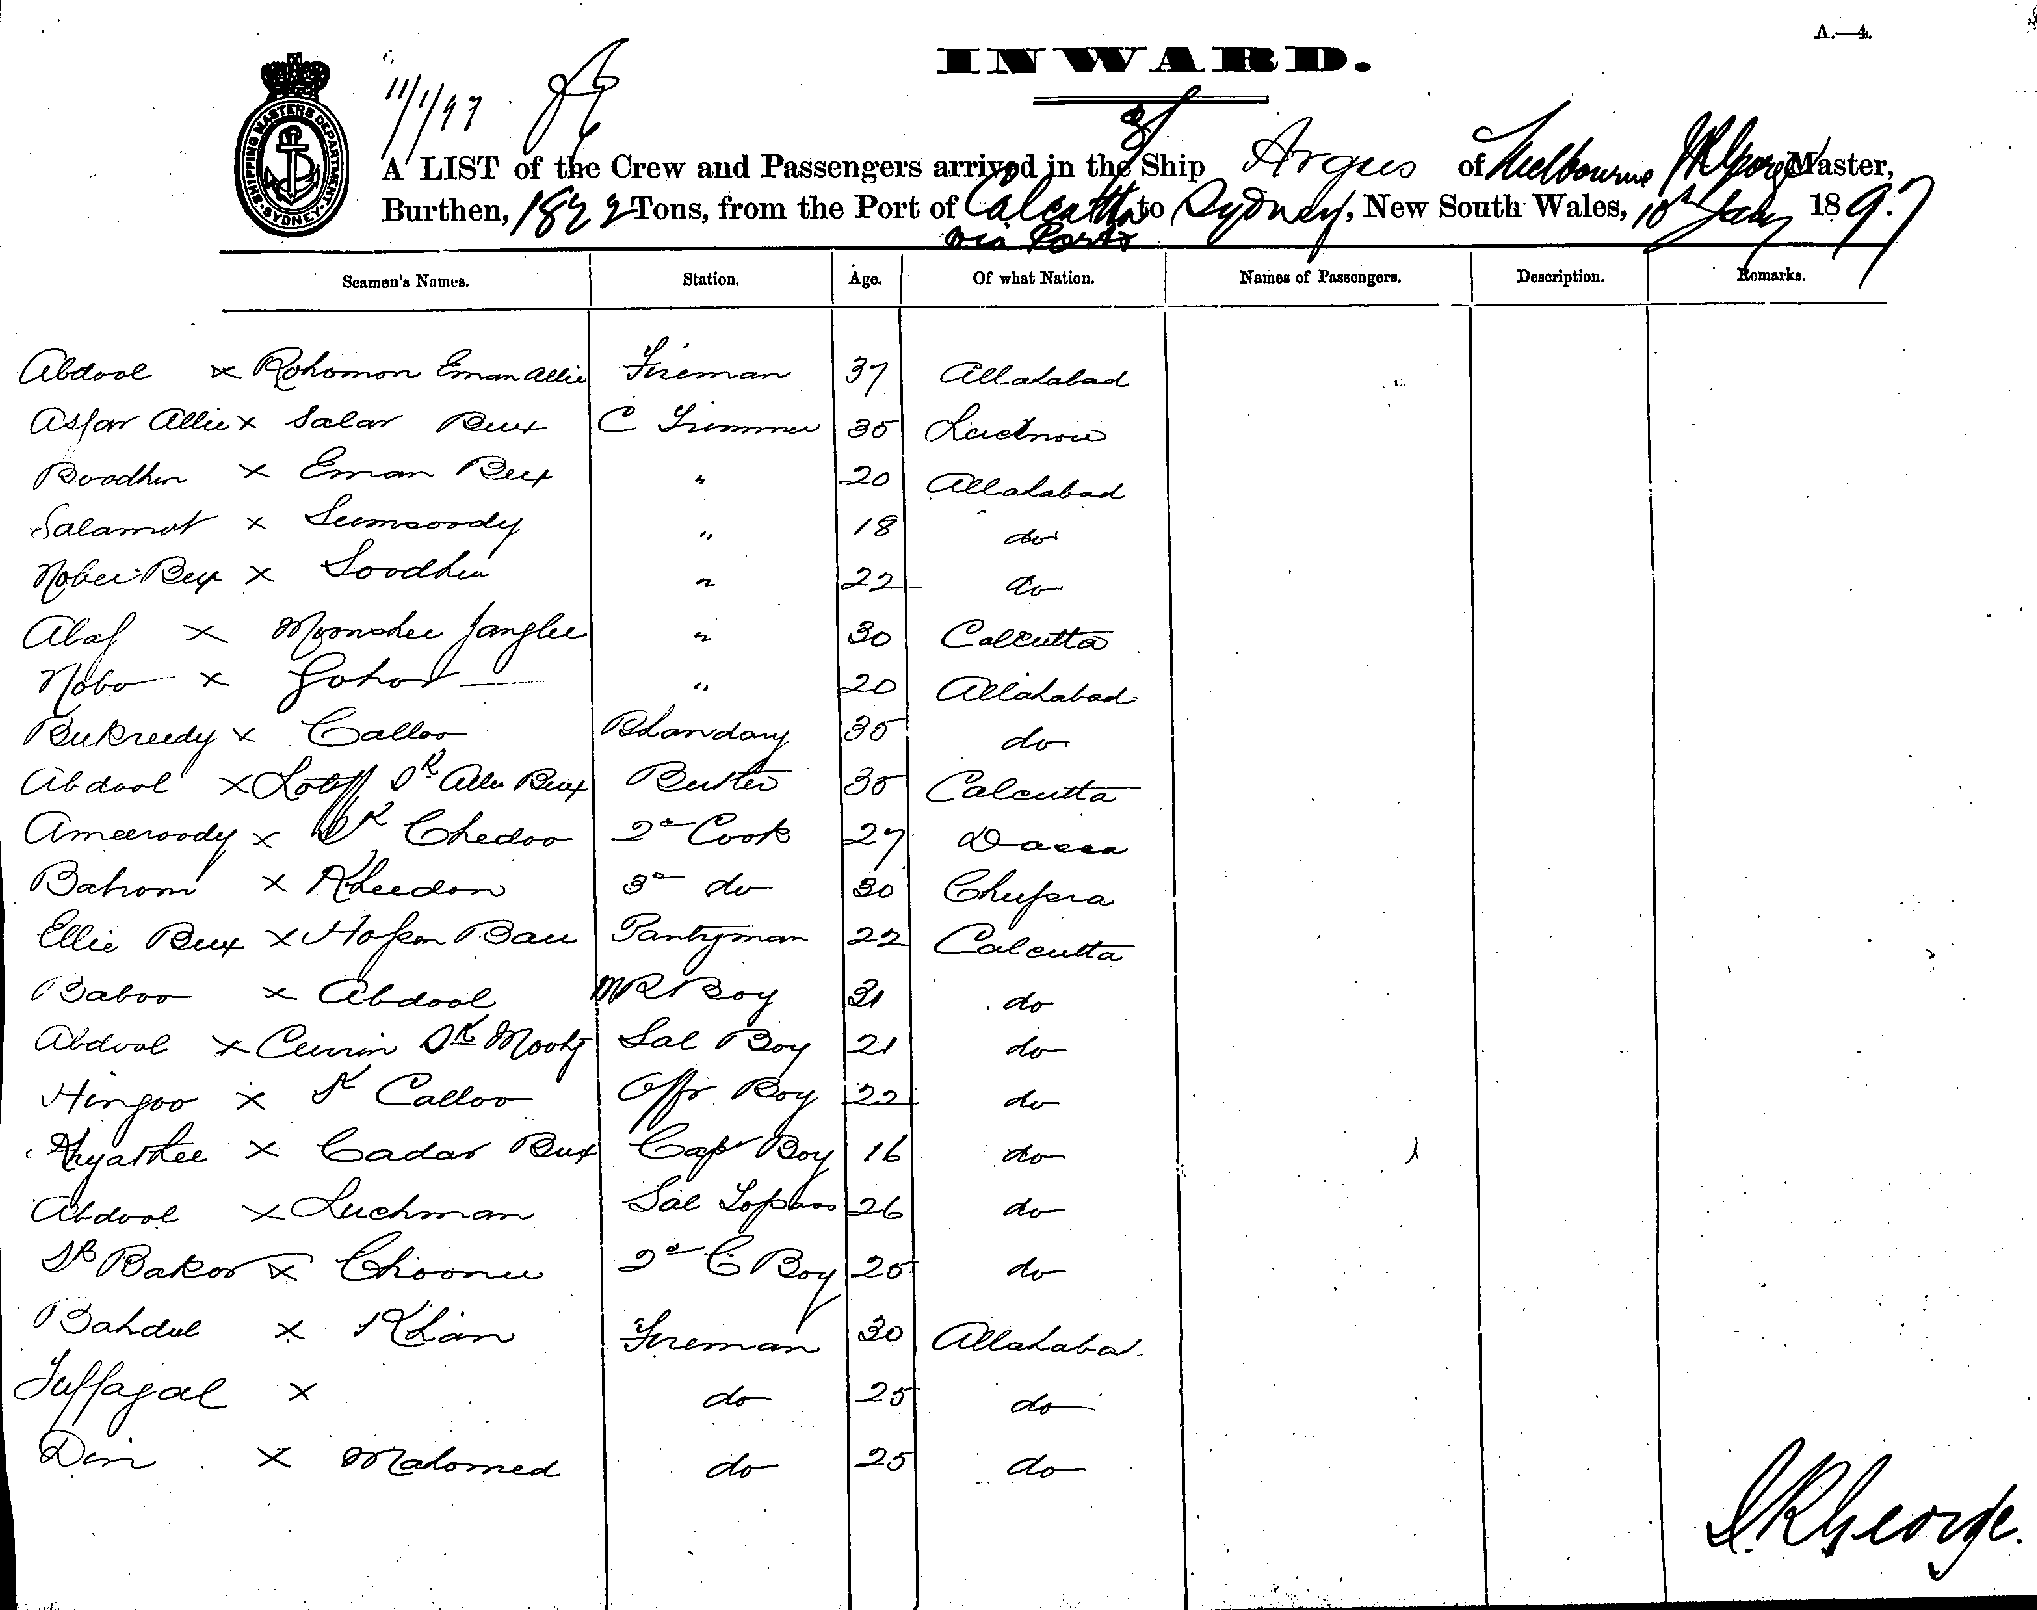 A.—4.
INWARD.
11/1/97
SHIPPING MASTERS DEPARTMENT SYDNEY
A LIST of the Crew and Passengers arrived in the Ship Argus of Melbourne Master,
Burthen, 1822 Tons, from the Port of Calcutta to Sydney, New South Wales, 10th Jany 1897
via Ports
Seamen's Names. Station. Age. Of what Nation. Names of Passengers. Description. Remarks.
Abdool x Rohomon Eman Allie Fireman 37 Allahabad
Asfar Allie x Salar Bux C Trimmer 35 Lucknow
Boodhu x Eman Bux " 20 Allahabad
Salamot x Sumsoody " 18 do
Nobei Bux x Soodhu " 22 do
Alaf x Moonshee Janglee " 30 Calcutta
Nobo x Gohor " 20 Allahabad
Bukreedy x Calloo Bhandary 35 do
Abdool x Sk Allie Bux Butler 35 Calcutta
Ameeroody x Sk Chedoo 2d Cook 27 Dacca
Bahom x Kheedon 3d do 30 Chupra
Ellie Bux x Hossen Bau Pantryman 22 Calcutta
Baboo x Abdool M R Boy 31 do
Abdool x Currim Sk Sal Boy 21 do
Hingoo x Sk Calloo Offr Boy 22 do
x Cadar Bux Capt Boy 16 do
Abdool x Luchman Sal Topass 26 do
Sk Bakor x Choonu 2d C Boy 25 do
Bahdul x Khan Fireman 30 Allahabad
Tuffagal x do 25 do
Din x Mahomed do 25 do
J.R. George.